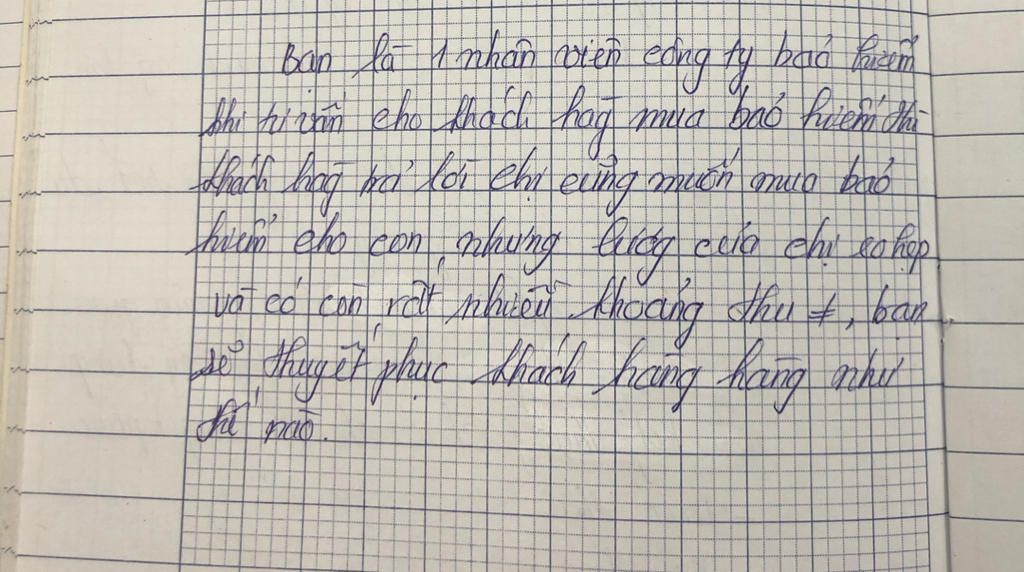 Bạn là 1 nhân viên công ty bảo hiểm
khi tư vấn cho khách hàg mua bảo hiểm thì
khách hàg trả lời chị cũng muốn mua bảo
hiểm cho con, nhưng lươg của chị eo hẹp
và có còn rất nhiều khoảng thu ≠, bạn
sẽ thuyết phục khách hàng hàng như
thế nào.